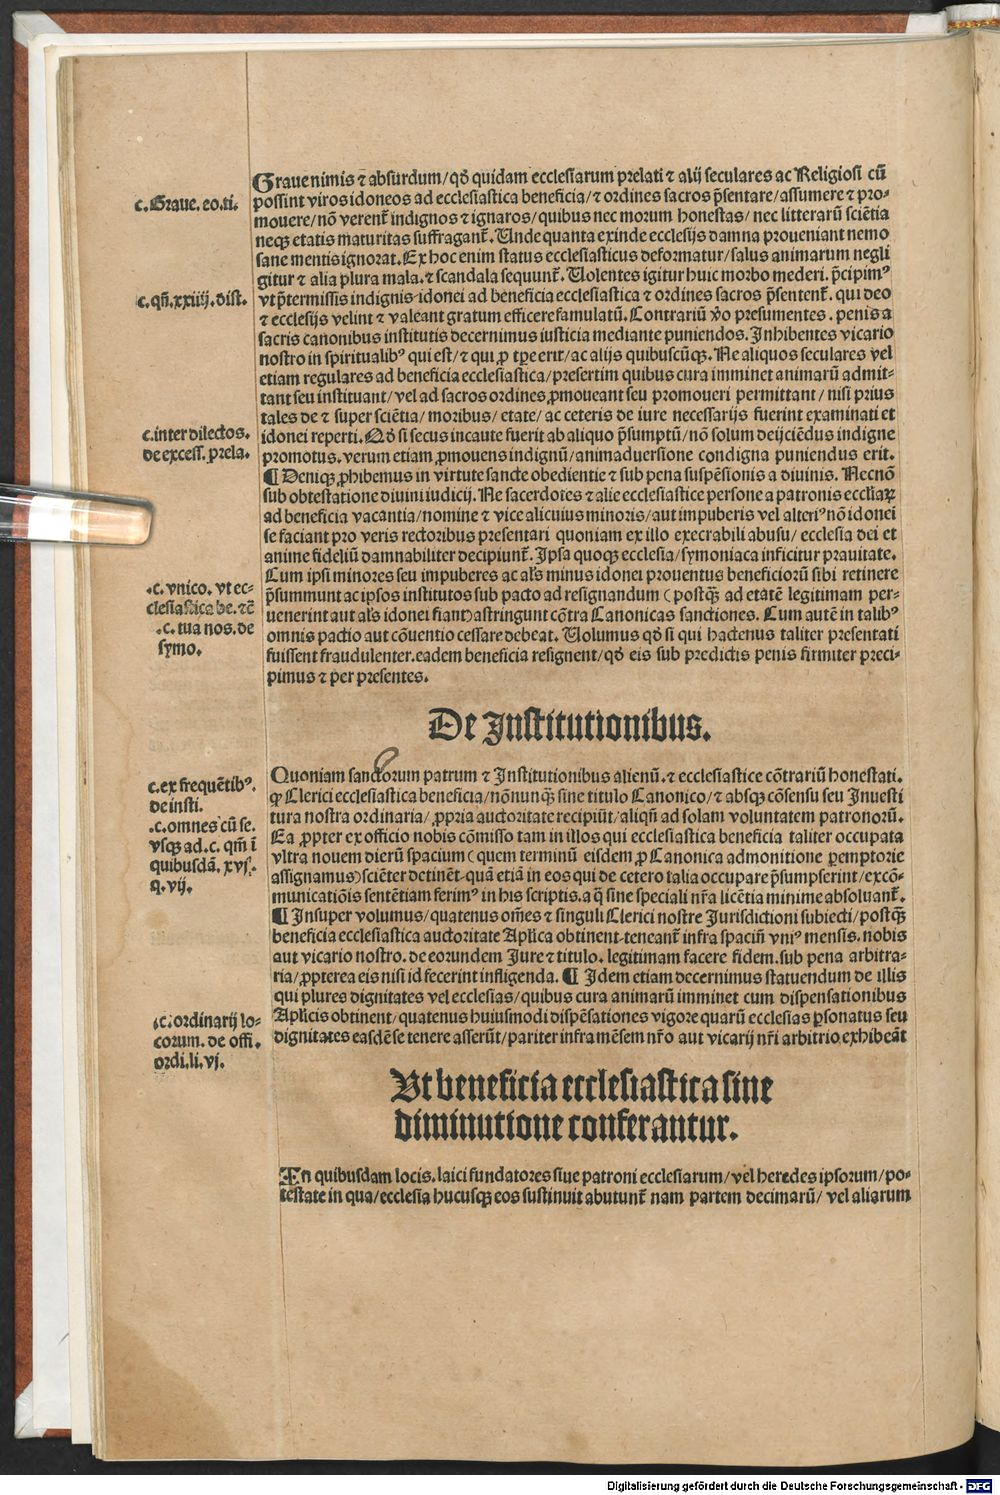 Graue nimis ⁊ absurdum/qđ quidam ecclesiarum prelati ⁊ alij seculares ac Religiosi cū
possint viros idoneos ad ecclesiastica beneficia/⁊ ordines sacros p̄sentare/assumere ⁊ pro-
mouere/nō verent᷑ indignos ⁊ ignaros/quibus nec morum honestas/ nec litterarū sciētia
neqꝫ etatis maturitas suffragant᷑. Unde quanta exinde ecclesijs damna proueniant nemo
sane mentis ignorat. Ex hoc enim status ecclesiasticus deformatur/salus animarum negli
gitur ⁊ alia plura mala. ⁊ scandala sequunt᷑. Uolentes igitur huic morbo mederi. p̄cipimꝰ
vt p̄termissis indignis-idonei ad beneficia ecclesiastica ⁊ ordines sacros p̄sentent᷑. qui deo
⁊ ecclesijs velint ⁊ valeant gratum efficere famulatū. Contrariū ṽo presumentes. penis a
sacris canonibus institutis decernimus iusticia mediante puniendos. Inhibentes vicario
nostro in spiritualibꝰ qui est/⁊ qui ꝓ tp̄e erit/ac alijs quibuscūqꝫ. Ne aliquos seculares vel
etiam regulares ad beneficia ecclesiastica/presertim quibus cura imminet animarū admit-
tant seu instituant/vel ad sacros ordines ꝓmoueant seu promoueri permittant/ nisi prius
tales de ⁊ super sciētia/ moribus/ etate/ ac ceteris de iure necessarijs fuerint examinati et
idonei reperti. Qđ si secus incaute fuerit ab aliquo p̄sumptū/nō solum deijciēdus indigne
promotus. verum etiam ꝓmouens indignū/animaduersione condigna puniendus erit.
¶ Deniqꝫ ꝓhibemus in virtute sancte obedientie ⁊ sub pena suspēsionis a diuinis. Necnō
sub obtestatione diuini iudicij. Ne sacerdotes ⁊ alie ecclesiastice persone a patronis eccl̄iaꝝ
ad beneficia vacantia/nomine ⁊ vice alicuius minoris/aut impuberis vel alteriꝰ nō idonei
se faciant pro veris rectoribus presentari quoniam ex illo execrabili abusu/ ecclesia dei et
anime fideliū damnabiliter decipiunt᷑. Ipsa quoqꝫ ecclesia/symoniaca inficitur prauitate.
Cum ipsi minores seu impuberes ac al̄s minus idonei prouentus beneficiorū sibi retinere
p̄summunt ac ipsos institutos sub pacto ad resignandum (postqꝫ̄ ad etatē legitimam per-
uenerint aut al̄s idonei fiant) astringunt cōtra Canonicas sanctiones. Cum autē in talibꝰ
omnis pactio aut cōuentio cessare debeat. Uolumus qđ si qui hactenus taliter presentati
fuissent fraudulenter. eadem beneficia resignent/qđ eis sub predictis penis firmiter preci-
pimus ⁊ per presentes.
c. Graue. eo. ti.
c. qn̄. xxiiij. dist.
c. inter dilectos.
de excess. prela.
.c. vnico. vt ec-
clesiastica be. ⁊c̄
.c. tua nos. de
symo.
De Institutionibus.
Quoniam sanctorum patrum ⁊ Institutionibus alienū. ⁊ ecclesiastice cōtrariū honestati.
ꝙ Clerici ecclesiastica beneficia/nōnunqꝫ̄ sine titulo Canonico/⁊ absqꝫ cōsensu seu Inuesti
tura nostra ordinaria/ ꝓpria auctoritate recipiūt/aliqn̄ ad solam voluntatem patronorū.
Ea ꝓpter ex officio nobis cōmisso tam in illos qui ecclesiastica beneficia taliter occupata
vltra nouem dierū spacium (quem terminū eisdem ꝓ Canonica admonitione ꝑemptorie
assignamus) sciēter detinēt-quā etiā in eos qui de cetero talia occupare p̄sumpserint/excō-
municatiōis sentētiam ferimꝰ in his scriptis. a q̄ sine speciali nr̄a licētia minime absoluant᷑.
¶ Insuper volumus/quatenus om̄es ⁊ singuli Clerici nostre Jurisdictioni subiecti/postqꝫ̄
beneficia ecclesiastica auctoritate Ap̄lica obtinent-teneant᷑ infra spaciū vniꝰ mensis. nobis
aut vicario nostro. de eorundem Jure ⁊ titulo. legitimam facere fidem. sub pena arbitra-
ria/ꝓpterea eis nisi id fecerint infligenda. ¶ Idem etiam decernimus statuendum de illis
qui plures dignitates vel ecclesias/quibus cura animarū imminet cum dispensationibus
Ap̄licis obtinent/quatenus huiusmodi dispēsationes vigore quarū ecclesias ꝑsonatus seu
dignitates easdē se tenere asserūt/pariter infra mēsem nr̄o aut vicarij nr̄i arbitrio exhibeāt
c. ex frequētibꝰ.
de insti.
.c. omnes cū se.
vsqꝫ ad. c. qm̄ ī
quibusdā. xvj.
q. vij.
.c. ordinarij lo-
corum. de offi.
ordi. li. vj.
Ut beneficia ecclesiastica sine
diminutione conferantur.
In quibusdam locis. laici fundatores siue patroni ecclesiarum/vel heredes ipsorum/po-
testate in qua/ecclesia hucusqꝫ eos sustinuit abutunt᷑ nam partem decimarū/ vel aliarum
Digitalisierung gefördert durch die Deutsche Forschungsgemeinschaft - DFG